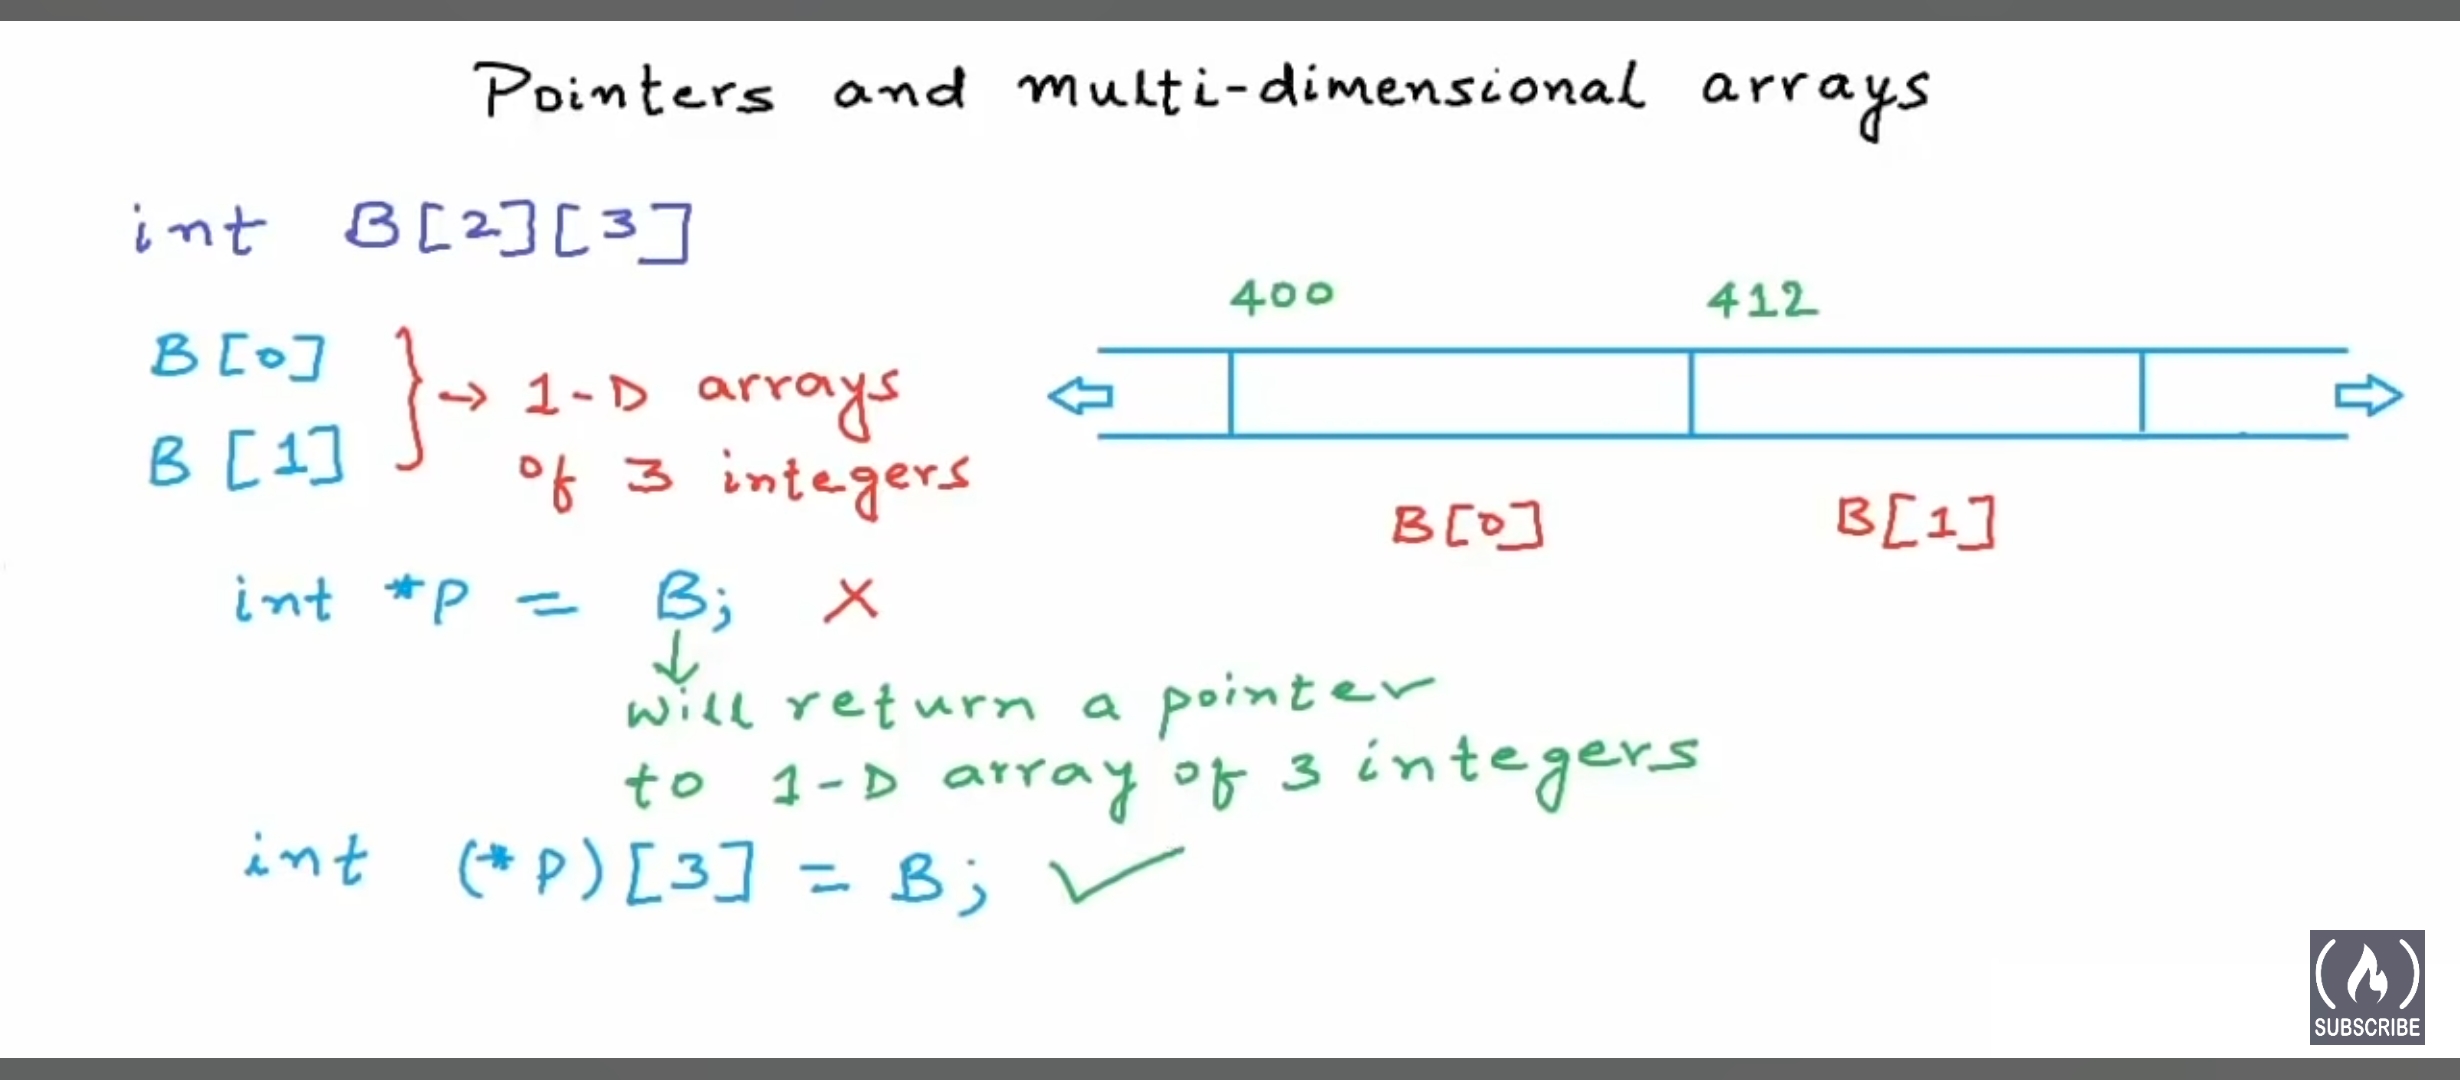 Pointers and multi-dimensional arrays
int B[2][3]
400 412
B[0]
B[1]
} → 1-D arrays
of 3 integers
B[0] B[1]
int *p = B; X
↓
will return a pointer
to 1-D array of 3 integers
int (*p)[3] = B; ✓
SUBSCRIBE